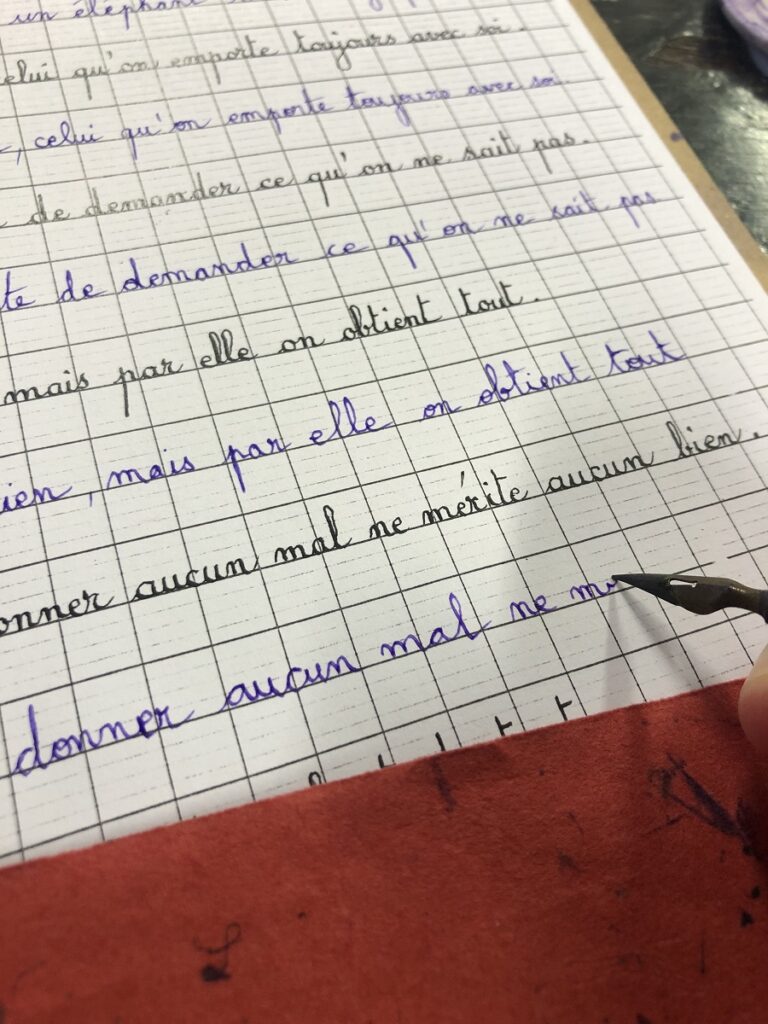 un éléphant
elui qu'on emporte toujours avec soi.
, celui qu'on emporte toujours avec soi.
de demander ce qu'on ne sait pas.
te de demander ce qu'on ne sait pas
mais par elle on obtient tout.
ien, mais par elle on obtient tout
onner aucun mal ne mérite aucun bien.
donner aucun mal ne m